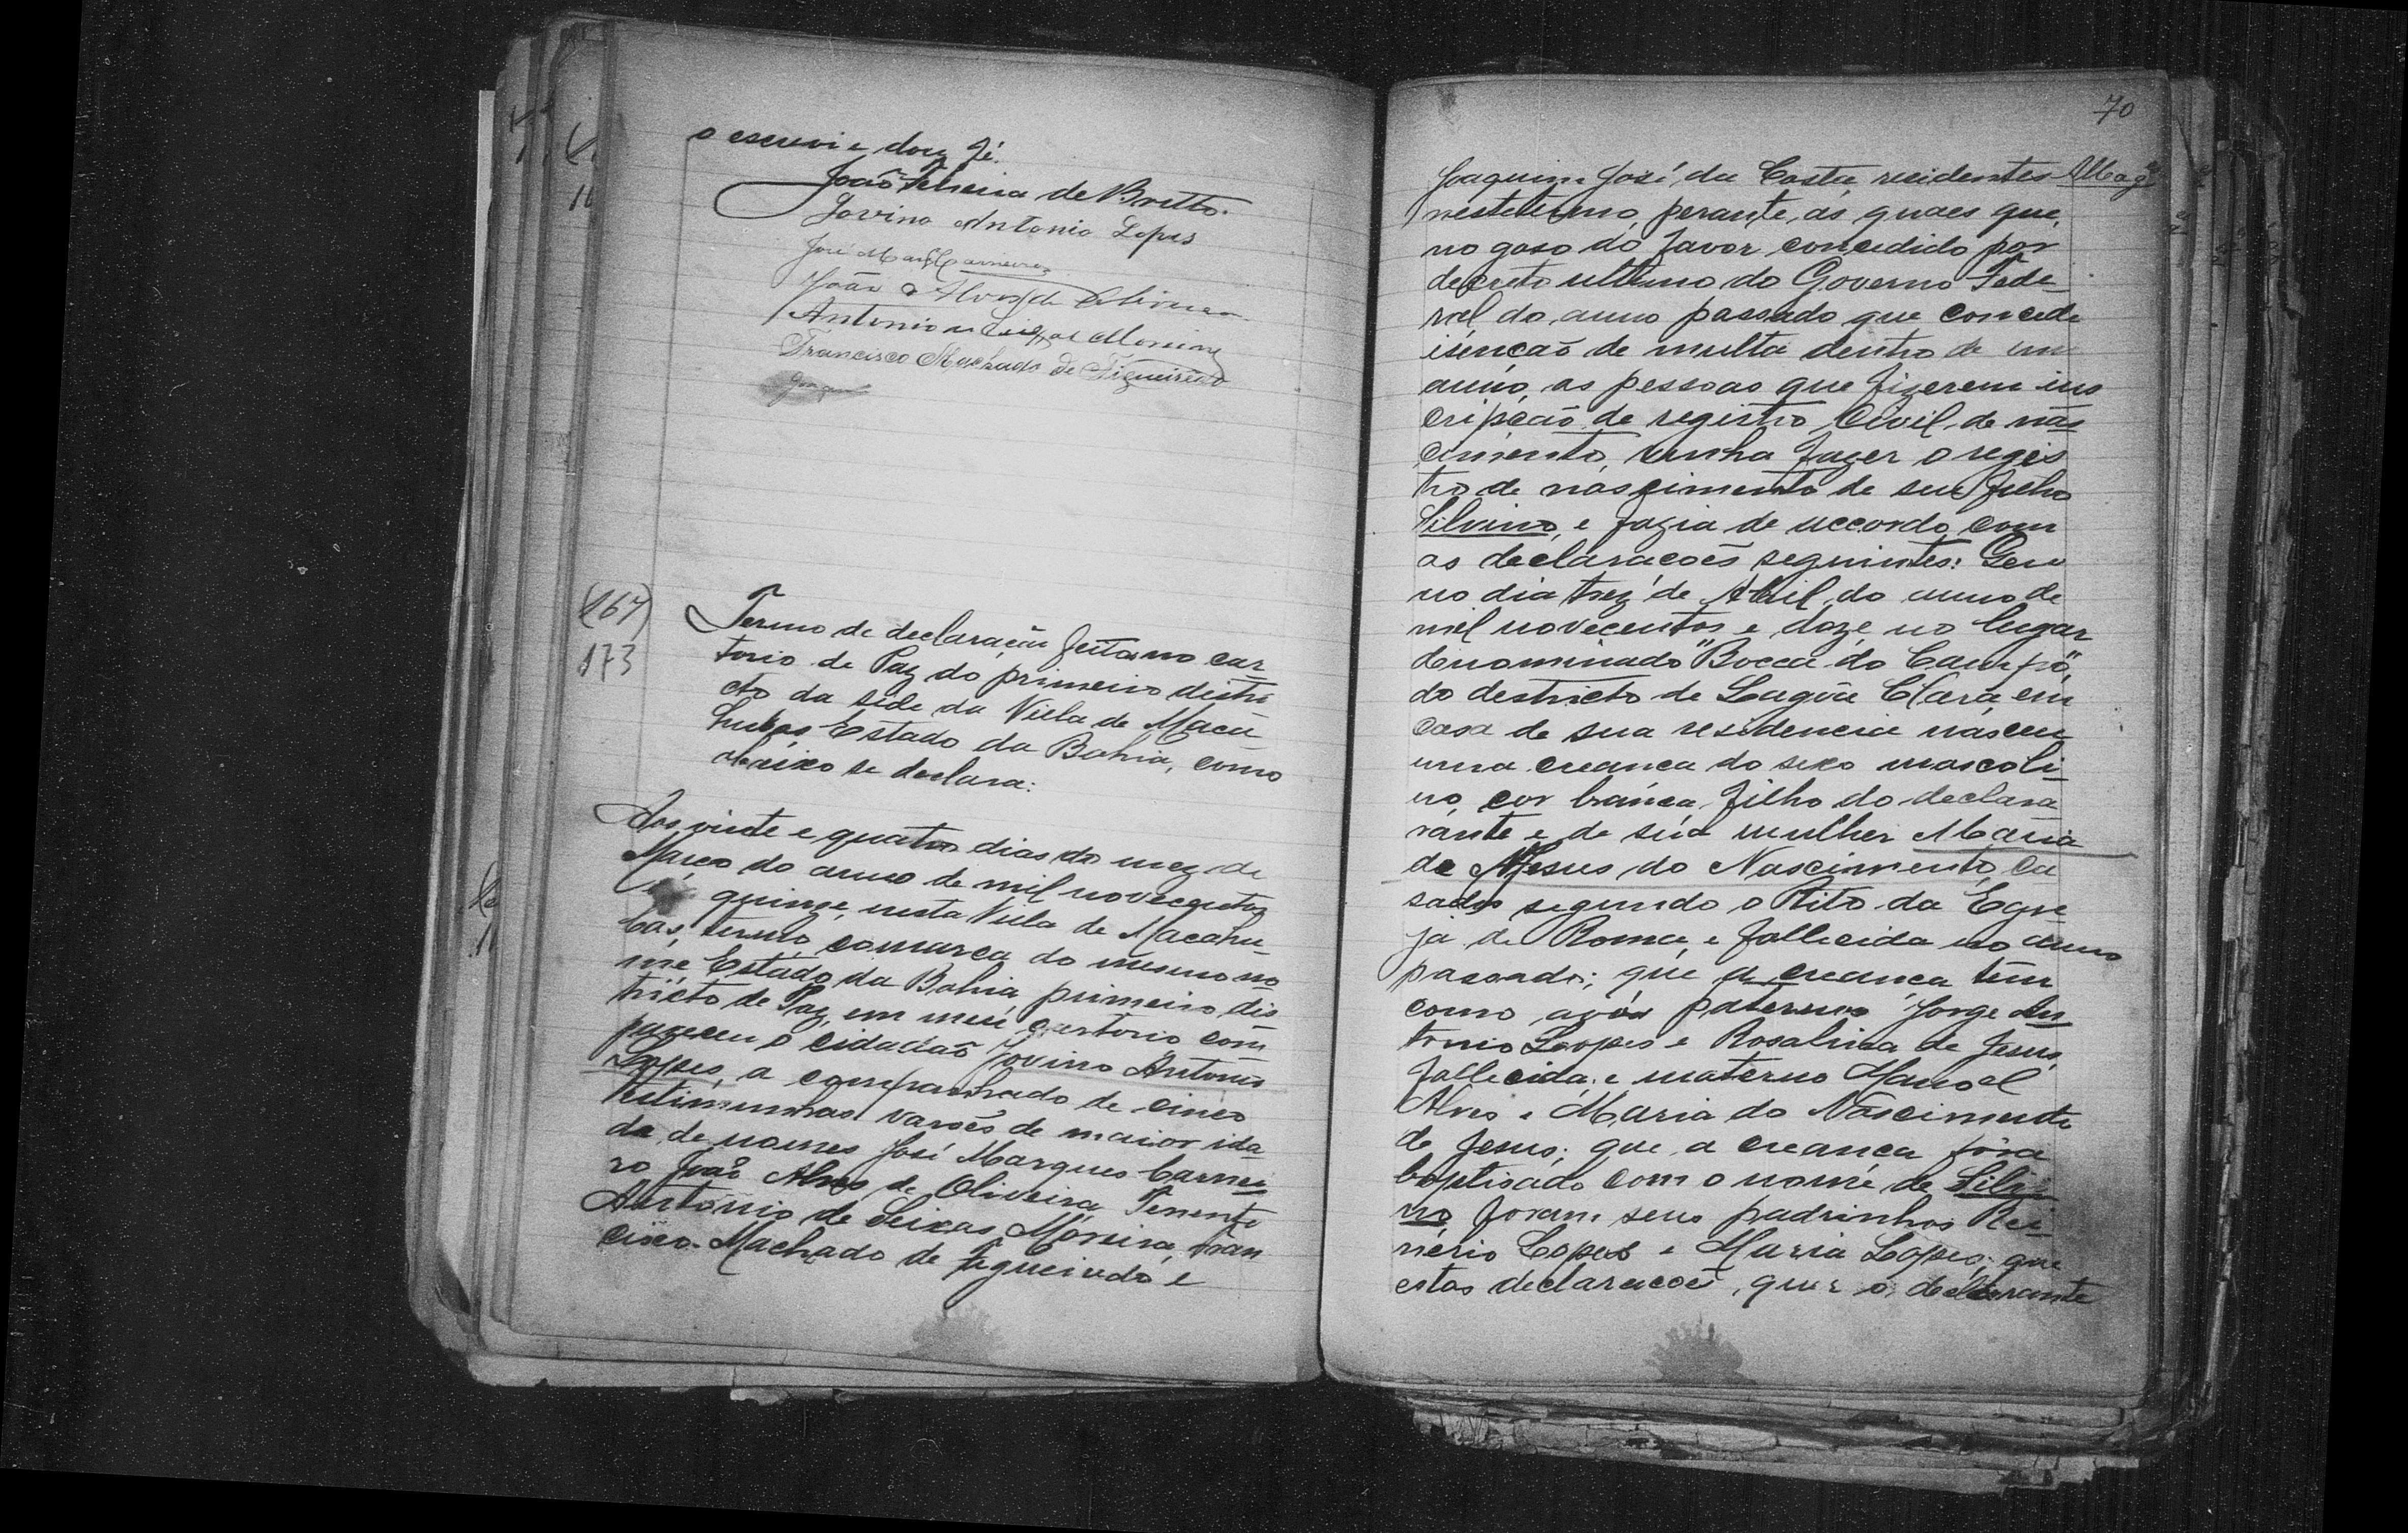 o escrevi e dou fé.
João Teixeira de Britto.
Jovino Antonio Lopes
José Marques Carneiro
João Alves de Oliveira
Antonio de Seixas Moreira
Francisco Machado de Figueirêdo
(167)
173
Termo de declaração feita no car
torio de Paz do primeiro distri
cto da séde da Villa de Macá
hubas Estado da Bahia, como
abaixo se declara:
Aos vinte e quatro dias do mez de
Março do anno de mil novecentos
quinze, nesta Villa de Macahu
bas, termo, comarca do mesmo no
me Estado da Bahia, primeiro dis
tricto de Paz, em meu cartorio com
pareceu o cidadão Jovino Antonio
Lopes, a companhado de cinco
testimunhas varoẽs de maior ida
de, de nomes José Marques Carnei
ro João Alves de Oliveira Tenente
Antonio de Seixas Moreira, Fran
cisco Machado de Figueiredo, e
70
Joaquim José da Costa, residentes
neste termo, perante, as quaes que,
no goso do favor concedido por
decreto ultimo do Governo Fede
ral do anno passado que concede
isenção de multa dentro de um
anno, as pessoas que fizerem ins
cripção de registro Civil de nas
cimento, vinha fazer o regis
tro de nascimento de seu filho
Silvino, e fazia de accordo com
as declaracoẽs seguintes: Que
no dia trez de Abril do anno de
mil novecentos e doze, no lugar
denominado "Bocca do Campo",
do destricto de Lagôa Clara, em
casa de sua residencia nasceu
uma creança do sexo mascoli
no, cor branca, filho do declara
rante e de súa mulher Maria
de Jesus do Nascimento, ca
sados segundo o Rito da Egre
ja de Roma, e fallecida no anno
passado; que a creança tem
como avós paternos Jorge An
tonio Loopes e Rosalina de Jesus,
fallecida; e materno Manoel
Alves e Maria do Nascimento
de Jesus; que a creança fôra
baptisado com o nome de Silvi
no foram seus padrinhos Rei
nerio Lopes e Maria Lopes; que
estas declaracoẽs, que o declarante